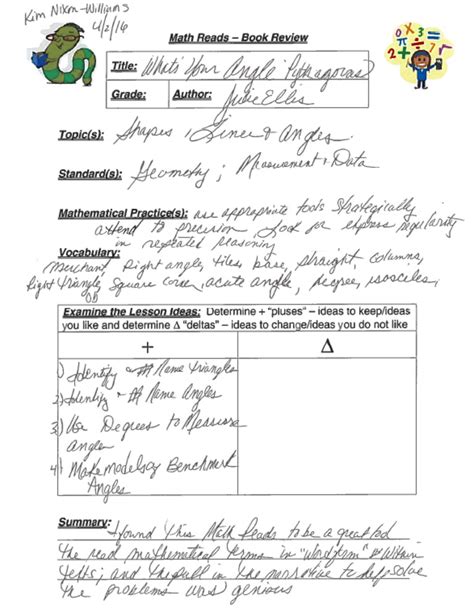 Kim Nixon-Williams
4/2/16
Math Reads – Book Review
Title: What's Your Angle Pythagoras?
Grade: Author: Julie Ellis
Topic(s): Shapes, Lines & Angles
Standard(s): Geometry; Measurement & Data
Mathematical Practice(s): use appropriate tools strategically
attend to precision, Look for express regularity
in repeated reasoning
Vocabulary:
merchant, Right angle, tiles, base, straight, columns,
Right triangle, Square, acute angle, degree, isosceles,
Examine the Lesson Ideas: Determine + "pluses" – ideas to keep/ideas
you like and determine Δ "deltas" – ideas to change/ideas you do not like
+ Δ
1) Identify & Name triangles
2) Identify & Name Angles
3) Use Degrees to Measure
angles
4) Make models of Benchmark
Angles
Summary: I found this Math Reads to be a great
the read mathematical terms in "word form" within
texts; and the pull in the narrative to help solve
the problems was genious